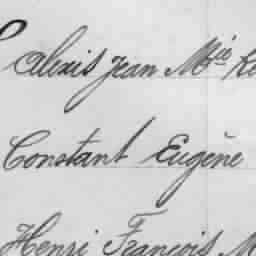 Alexis Jean Mie
Constant Eugène
Henri François